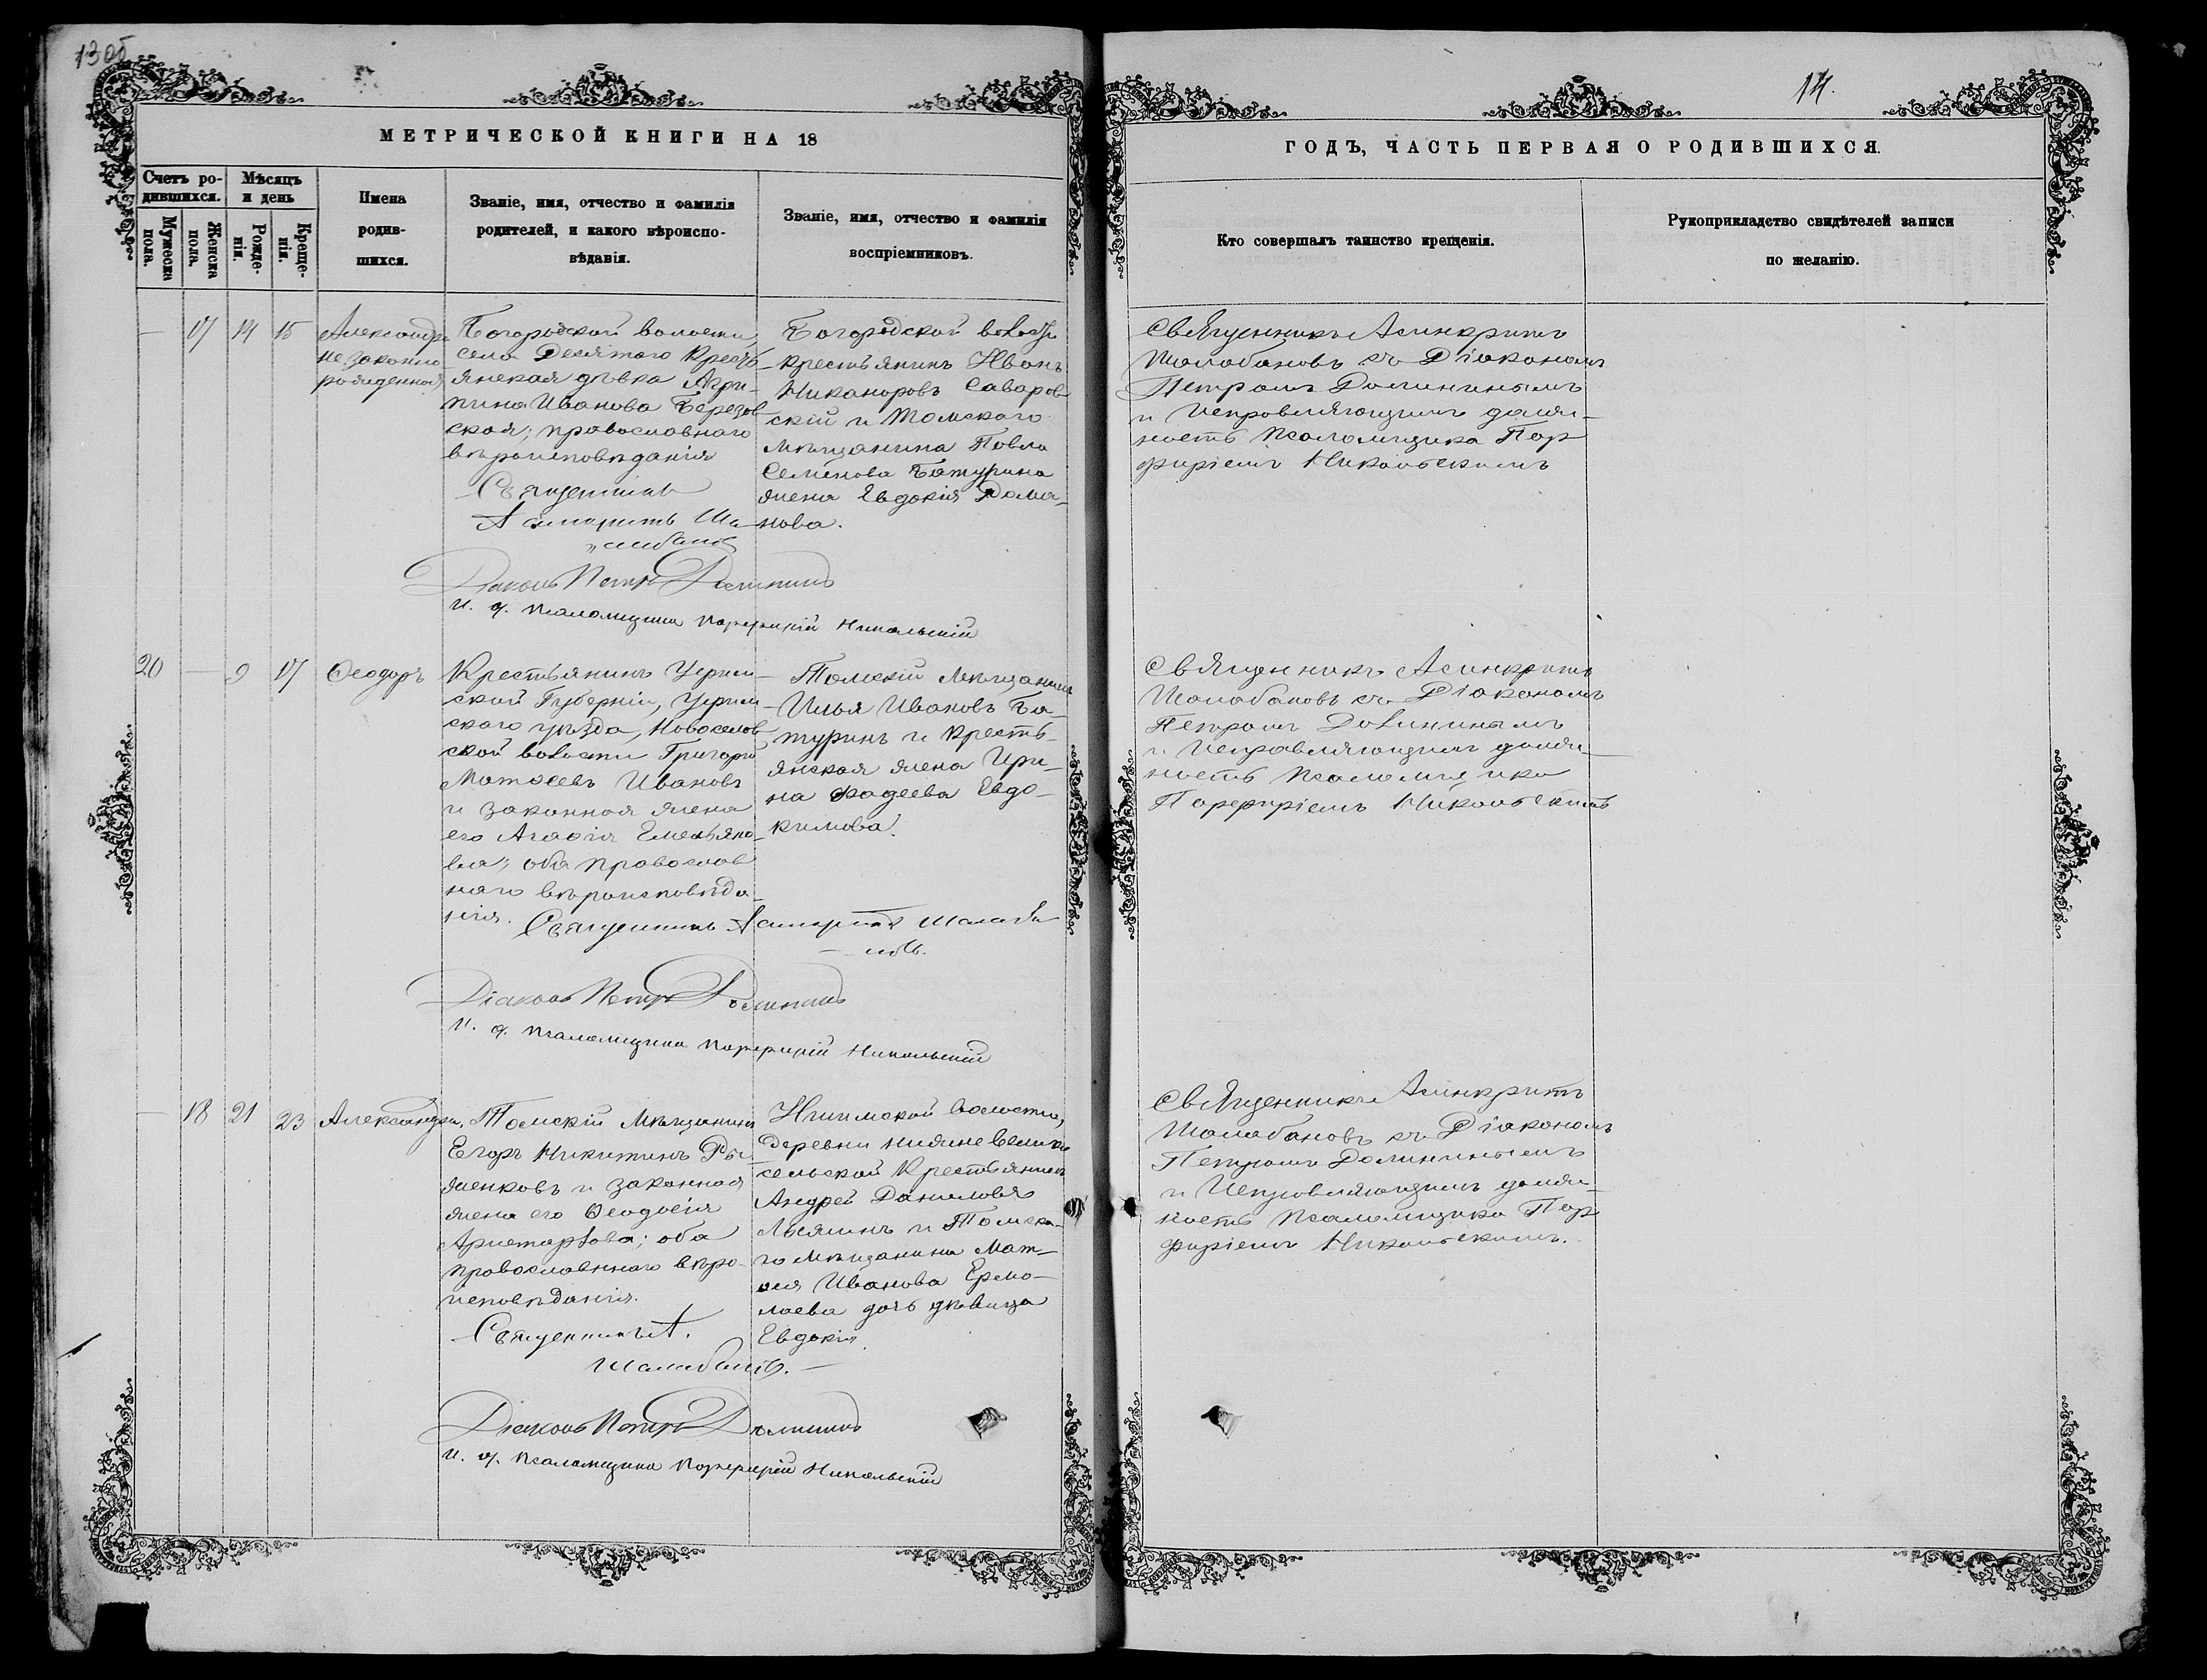 1305
14.
МЕТРИЧЕСКОЙ КНИГИ НА 18
ГОДЪ, ЧАСТЬ ПЕРВАЯ О РОДИВШИХСЯ.
Счетъ ро-
дившихся.
Мужеска
пола.
Женска
пола.
Мѣсяцъ
и день
Рожде-
нія.
Креще-
нія.
Имена
родив-
шихся.
Званіе, имя, отчество и фамилія
родителей, и какого вѣроиспо-
вѣданія.
Званіе, имя, отчество и фамилія
воспріемниковъ.
Кто совершалъ таинство крещенія.
Рукоприкладство свидѣтелей записи
по желанію.
— 17 14 15
Александра
незаконно
рожденная
Богородской волости,
села Десятого Кресть
янская дѣвка Агри-
пина Иванова Березов
ская; православнаго
вѣроисповѣданія
Священникъ
Асинкритъ Ша-
Діаконъ Петръ Долининъ
И. д. Псаломщика Порфирій Никольскій
Богородской волости
крестьянинъ Иванъ
Никаноровъ Саваров
скій и Томскаго
мѣщанина Павла
Семенова Батурина
жена Евдокія Дамиа-
нова.
Священникъ Асинкритъ
Шалабановъ съ Діакономъ
Петромъ Долининымъ
и Исправляющимъ долж-
ность Псаломщика Пор
фиріемъ Никольскимъ
20 — 9 17
Ѳеодоръ
Крестьянинъ Перм-
ской Губерніи, Перм-
ского уѣзда, Новосѣлов
ской волости Григорій
Матѳеевъ Ивановъ
и законная жена
его Агафія Емельяно-
ва; оба православ
наго вѣроисповѣда-
нія.
Священникъ Асинкритъ Шалаба-
новъ.
Діаконъ Петръ Долининъ
И. д. Псаломщика Порфирій Никольскій
Томскій мѣщанинъ
Илья Ивановъ Ба-
туринъ и кресть-
янская жена Ири-
на Фадеева Евдо-
кимова.
Священникъ Асинкритъ
Шалабановъ съ Діакономъ
Петромъ Долининымъ
и Исправляющимъ долж-
ность Псаломщика
Порфиріемъ Никольскимъ
— 18 21 23
Александра
Томскій мѣщанинъ
Егоръ Никитинъ Ры
женковъ и законная
жена его Ѳеодосія
Аристархова; оба
православнаго вѣро-
исповѣданія.
Священникъ А.
Шалабановъ.
Діаконъ Петръ Долининъ
И. д. Псаломщика Порфирій Никольскій
волости,
деревни
сельской Крестьянинъ
Андрей Даниловъ
и Томска-
го мѣщанина Мат-
ѳея Иванова Ермо-
лаева дочь дѣвица
Евдокія.
Священникъ Асинкритъ
Шалабановъ съ Діакономъ
Петромъ Долининымъ
и Исправляющимъ долж-
ность Псаломщика Пор
фиріемъ Никольскимъ.